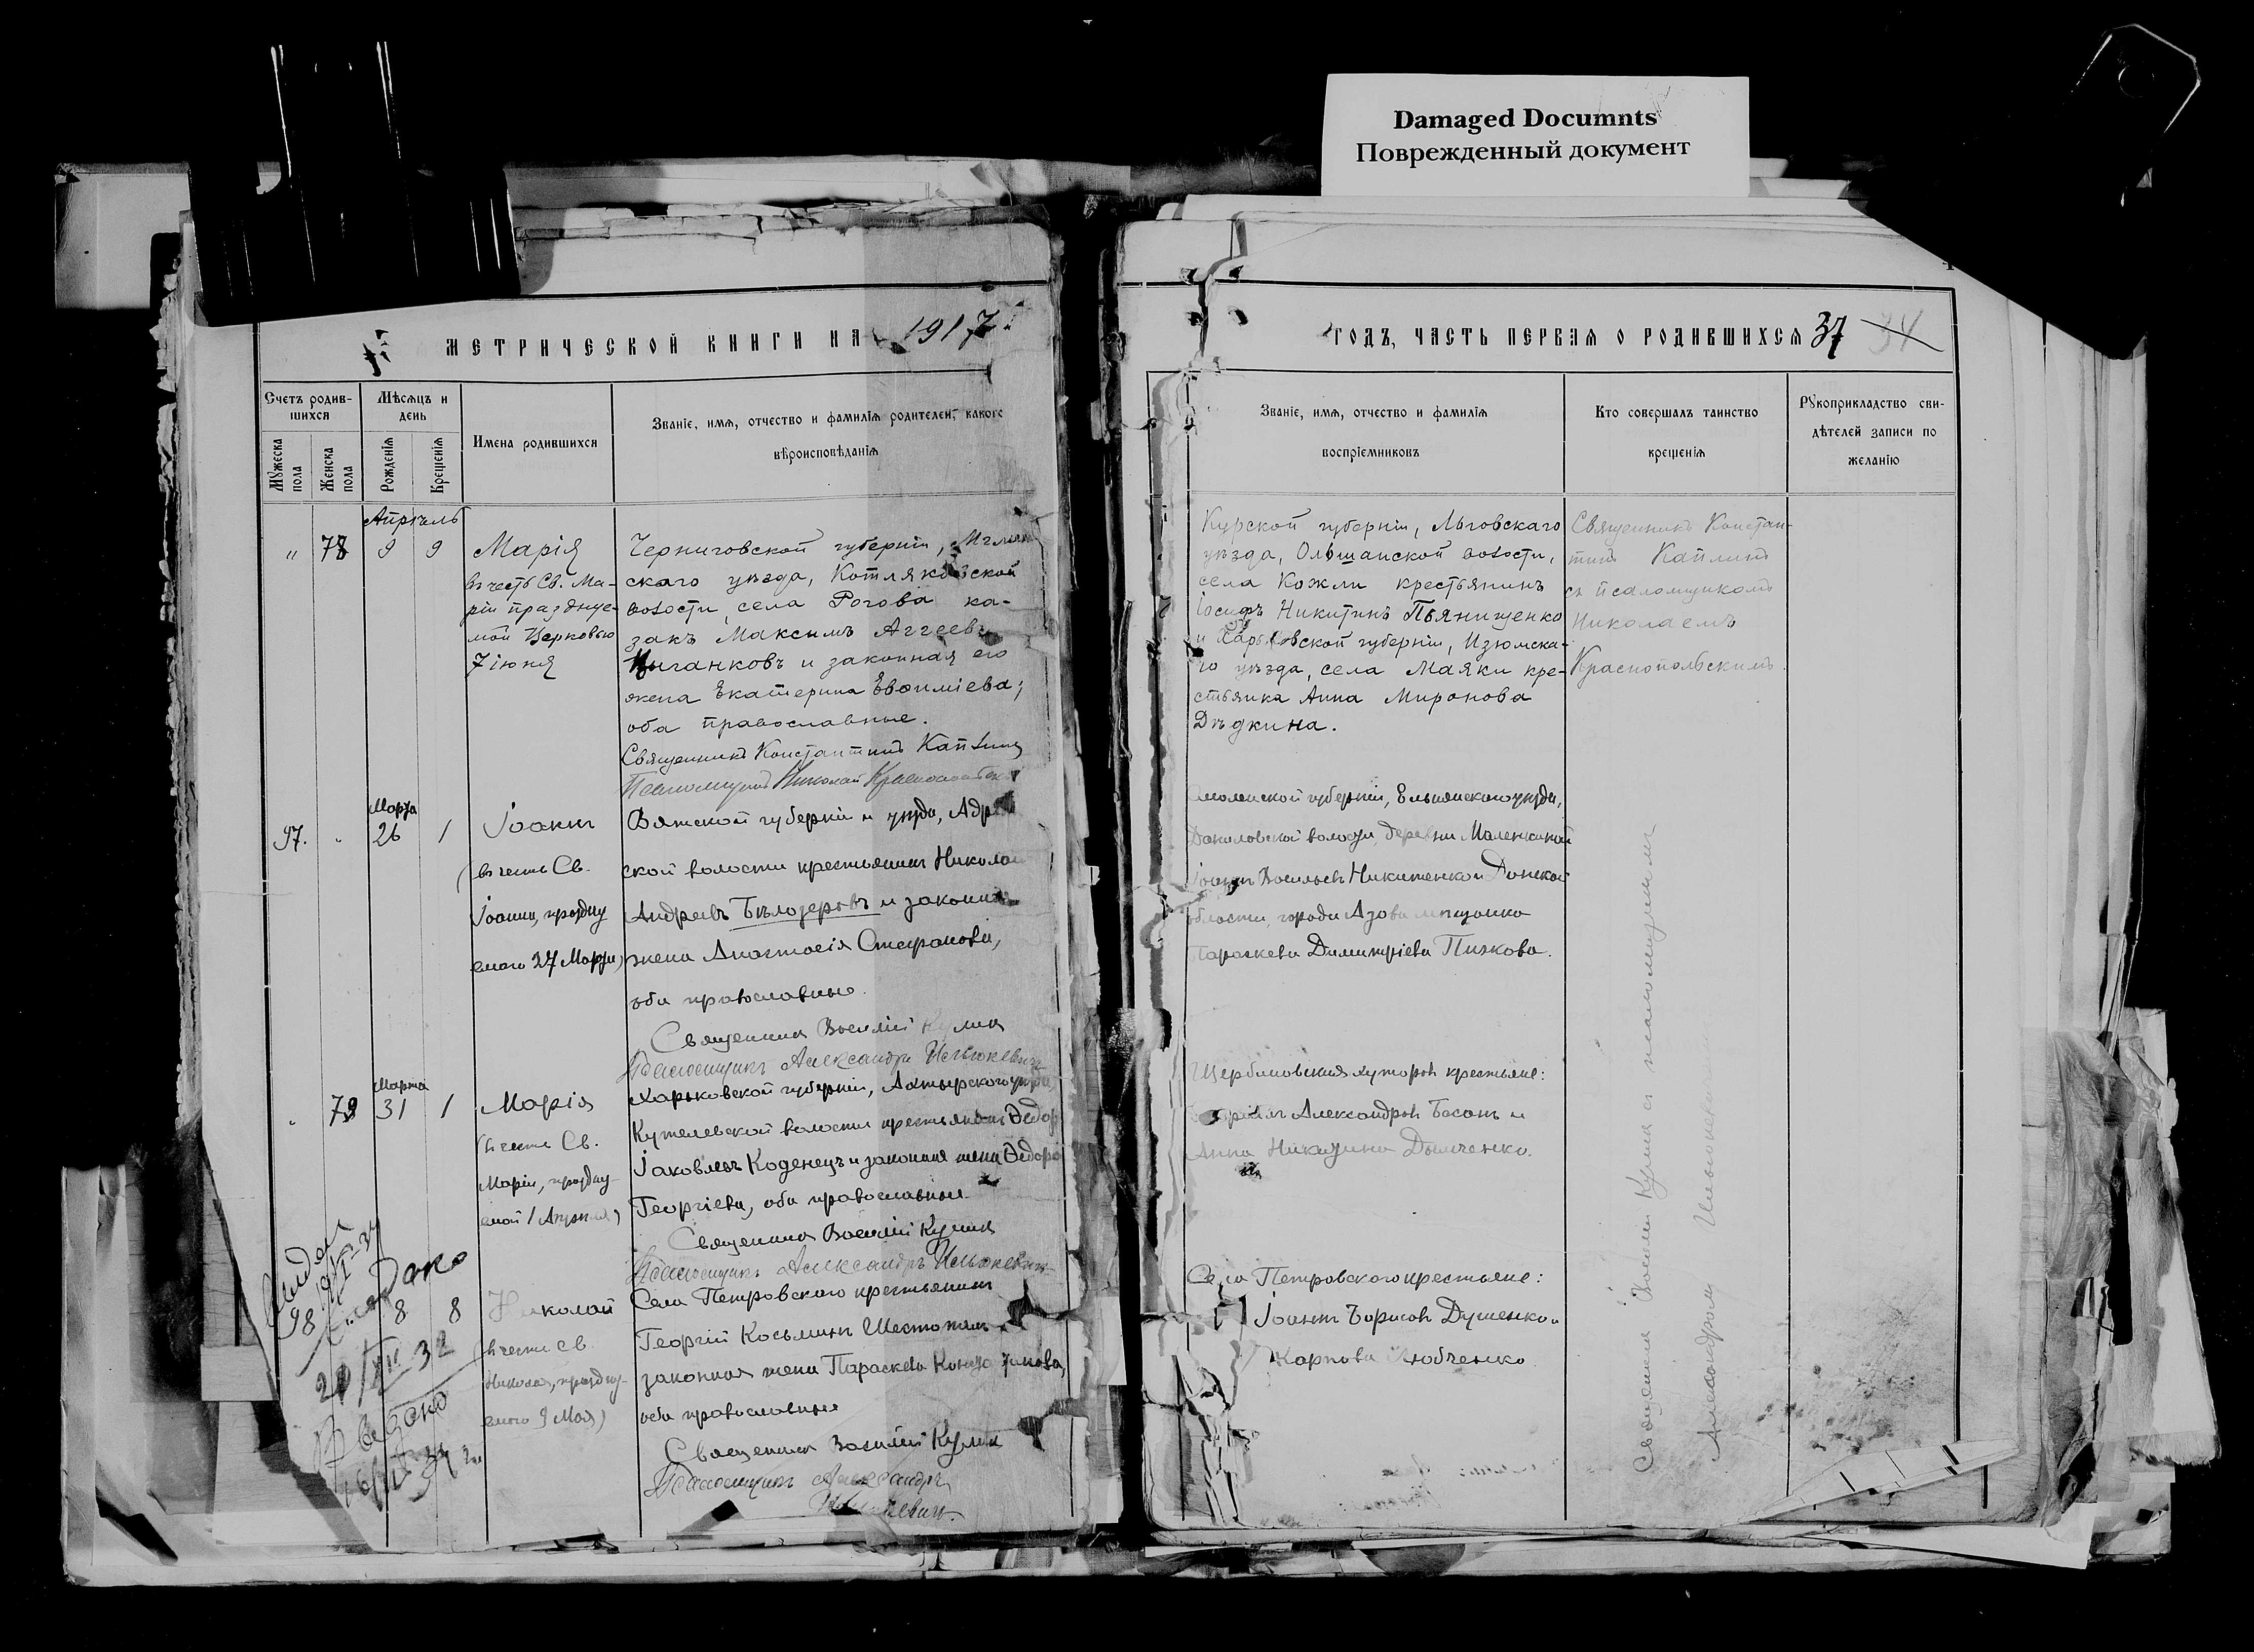 Damaged Documnts
Поврежденный документ
МЕТРИЧЕСКОЙ КНИГИ НА 1917
ГОДЪ, ЧАСТЬ ПЕРВАЯ О РОДИВШИХСЯ 37 34
Счетъ родив-
шихся
Мѣсяцъ и
день
Мужеска
пола
Женска
пола
Рожденія
Крещенія
Имена родившихся
Званіе, имя, отчество и фамилія родителей, какого
вѣроисповѣданія
Званіе, имя, отчество и фамилія
воспріемниковъ
Кто совершалъ таинство
крещенія
Рукоприкладство сви-
дѣтелей записи по
желанію
Апрѣль
" 78 9 9
Марія
въ честь Св. Ма-
ріи празднуе-
мой Церковью
7 іюня
Черниговской губерніи, Мглин
скаго уѣзда, Котляковской
волости села Рогова ка-
закъ Максимъ Аггеевъ
Цыганковъ и законная его
жена Екатерина Евѳиміева;
оба православные.
Священникъ Константинъ Каплинъ
Псаломщикъ Николай
Курской губерніи, Льговскаго
уѣзда, Ольшанской волости,
села Кожли крестьянинъ
Іосифъ Никитинъ Пьянищенко
и Харьковской губерніи, Изюмска-
го уѣзда, села Маяки кре-
стьянка Анна Миронова
Дѣдкина.
Священникъ Констан-
тинъ Каплинъ
съ псаломщикомъ
Николаемъ
Краснопольскимъ.
Марта
97. " 26 1
Іоаннъ
(въ честь Св.
Іоанна, праздну
емаго 27 Марта)
Вятской губерніи и уѣзда,
ской волости крестьянинъ Николай
Андреевъ Бѣлозеровъ и законная
жена Анастасія Стефанова,
оба православные.
Священникъ Василій Кулик
Псаломщикъ Александръ Ильюкевичъ
Смоленской губерніи, Ельнинскаго уѣзда,
волости, деревни
Іоаннъ Васильевъ Никитенко и Донской
области, города Азова мѣщанка
Параскева Димитріева Пижкова.
Марта
" 79 31 1
Марія
(въ честь Св.
Маріи, праздну-
емой 1 Апрѣля)
Харьковской губерніи, Ахтырскаго уѣзда,
волости крестьянинъ Ѳедоръ
Іаковлевъ Коденецъ и законная жена Ѳедора
Георгіева, оба православные.
Священникъ Василій Кулик
Псаломщикъ Александръ Ильюкевичъ
Щербиновскихъ хуторовъ крестьяне:
Александровъ Басанъ и
Анна Никитина Дымченко.
98 8 8
Николай
(въ честь св.
Николая, праздну-
емаго 9 Мая)
Села Петровскаго крестьянинъ
Георгій Косьминъ Шестопалъ
законная жена Параскева
оба православные
Священникъ Василій Кулик
Псаломщикъ Александръ
Ильюкевичъ.
Села Петровскаго крестьяне:
Іоаннъ Борисовъ Душенко и
Карпова Любченко
Священникъ Василій Кулик съ псаломщикомъ
Александромъ Ильюкевичемъ